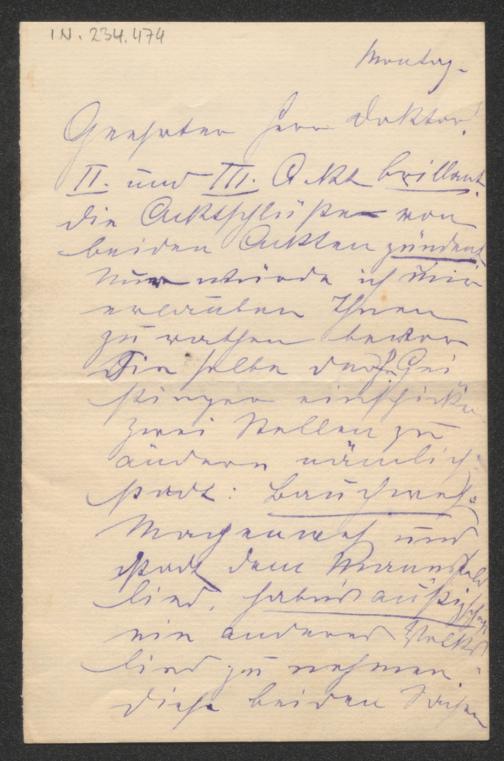 IN. 234.474
Montag.
Geehrter Herr Doktor!
II. und III. Akt brillant.
die Aktschlüße von
beiden Akten zündent
Nur würde ich mir
erlauben Ihnen
zu rathen bevor
Sie selbe der Gei
stinger einschicken
zwei Stellen zu
ändern nämlich
statt: Bauchweh:
Magenweh und
statt dem
lied, habn's
ein anderes Volks
lied zu nehmen.
Diese beiden Sachen